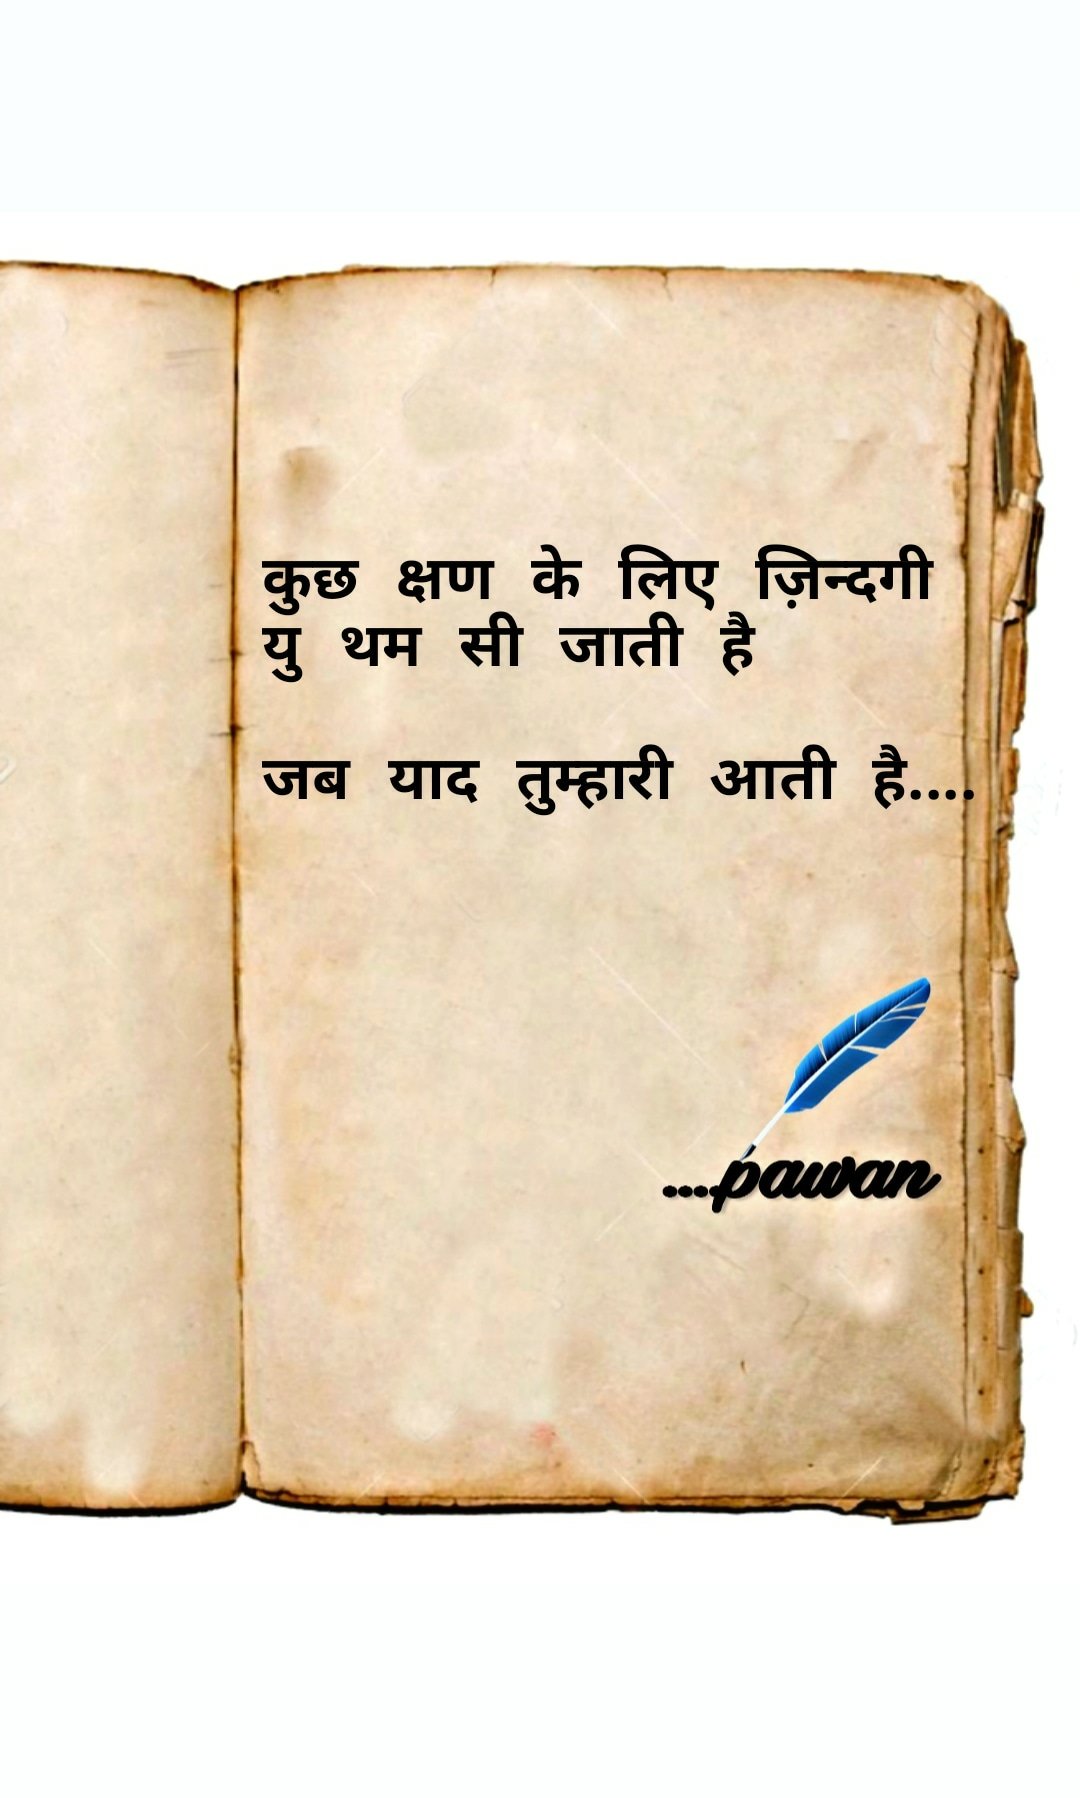 कुछ क्षण के लिए ज़िन्दगी
यु थम सी जाती है
जब याद तुम्हारी आती है....
....pawan